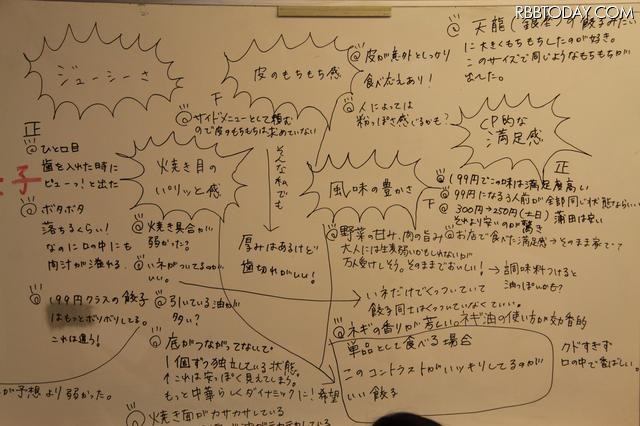 RBBTODAY.COM
@天龍(銀座)の餃子みたい
に大きくもちもちしたのが好き。
このサイズで同じようなもちもちが
出た。
ジューシーさ
皮のもちもち感
@皮が意外としっかり
食べ応えあり!
@人によっては
粉っぽさ感じるかも?
CP的な
満足感
下
@サイドメニューとして頼む
ので皮のもちもちは求めていない
そんな私でも
厚みはあるけど
歯切れがいい!
正
@ひと口目
歯を入れた時に
ピューっ!と出た
子
@ボタボタ
落ちるくらい!
なのに口の中にも
肉汁が溢れる.
@199円クラスの餃子
はもっとボソボソしてる。
これは違う!
が予想より弱かった。
焼き目の
パリッと感
@焼き具合が
弱かった?
@いネがついてるのが
いい。
@引いている油が
多い?
@底がつながってないで、
1個ずつ独立している状態
↑これは安っぽく見えてしまう。
もっと中華らしくダイナミックに!希望
@焼き面がカサカサしている
風味の豊かさ
@野菜の甘み、肉の旨み
大人には生姜弱いかもしれないが
万人受けしそう。そのままでおいしい!→調味料つけると
油っぽいかも?
いネだけでくっついていて
餃子同士はくっついていなくていい。
@ネギの香りが芳しい。ネギ油の使い方が効果的
単品として食べる場合
このコントラストがハッキリしてるのが
いい餃子
クドすぎず
口の中で香ばしい。
正
@199円でこの味は満足度高し
下
@99円になる3人前が全部同じ状態ならいい
@300円→250円(土日)蒲田は安い
それより安いのが驚き
@お店で食べた満足感→そのまま家で・?